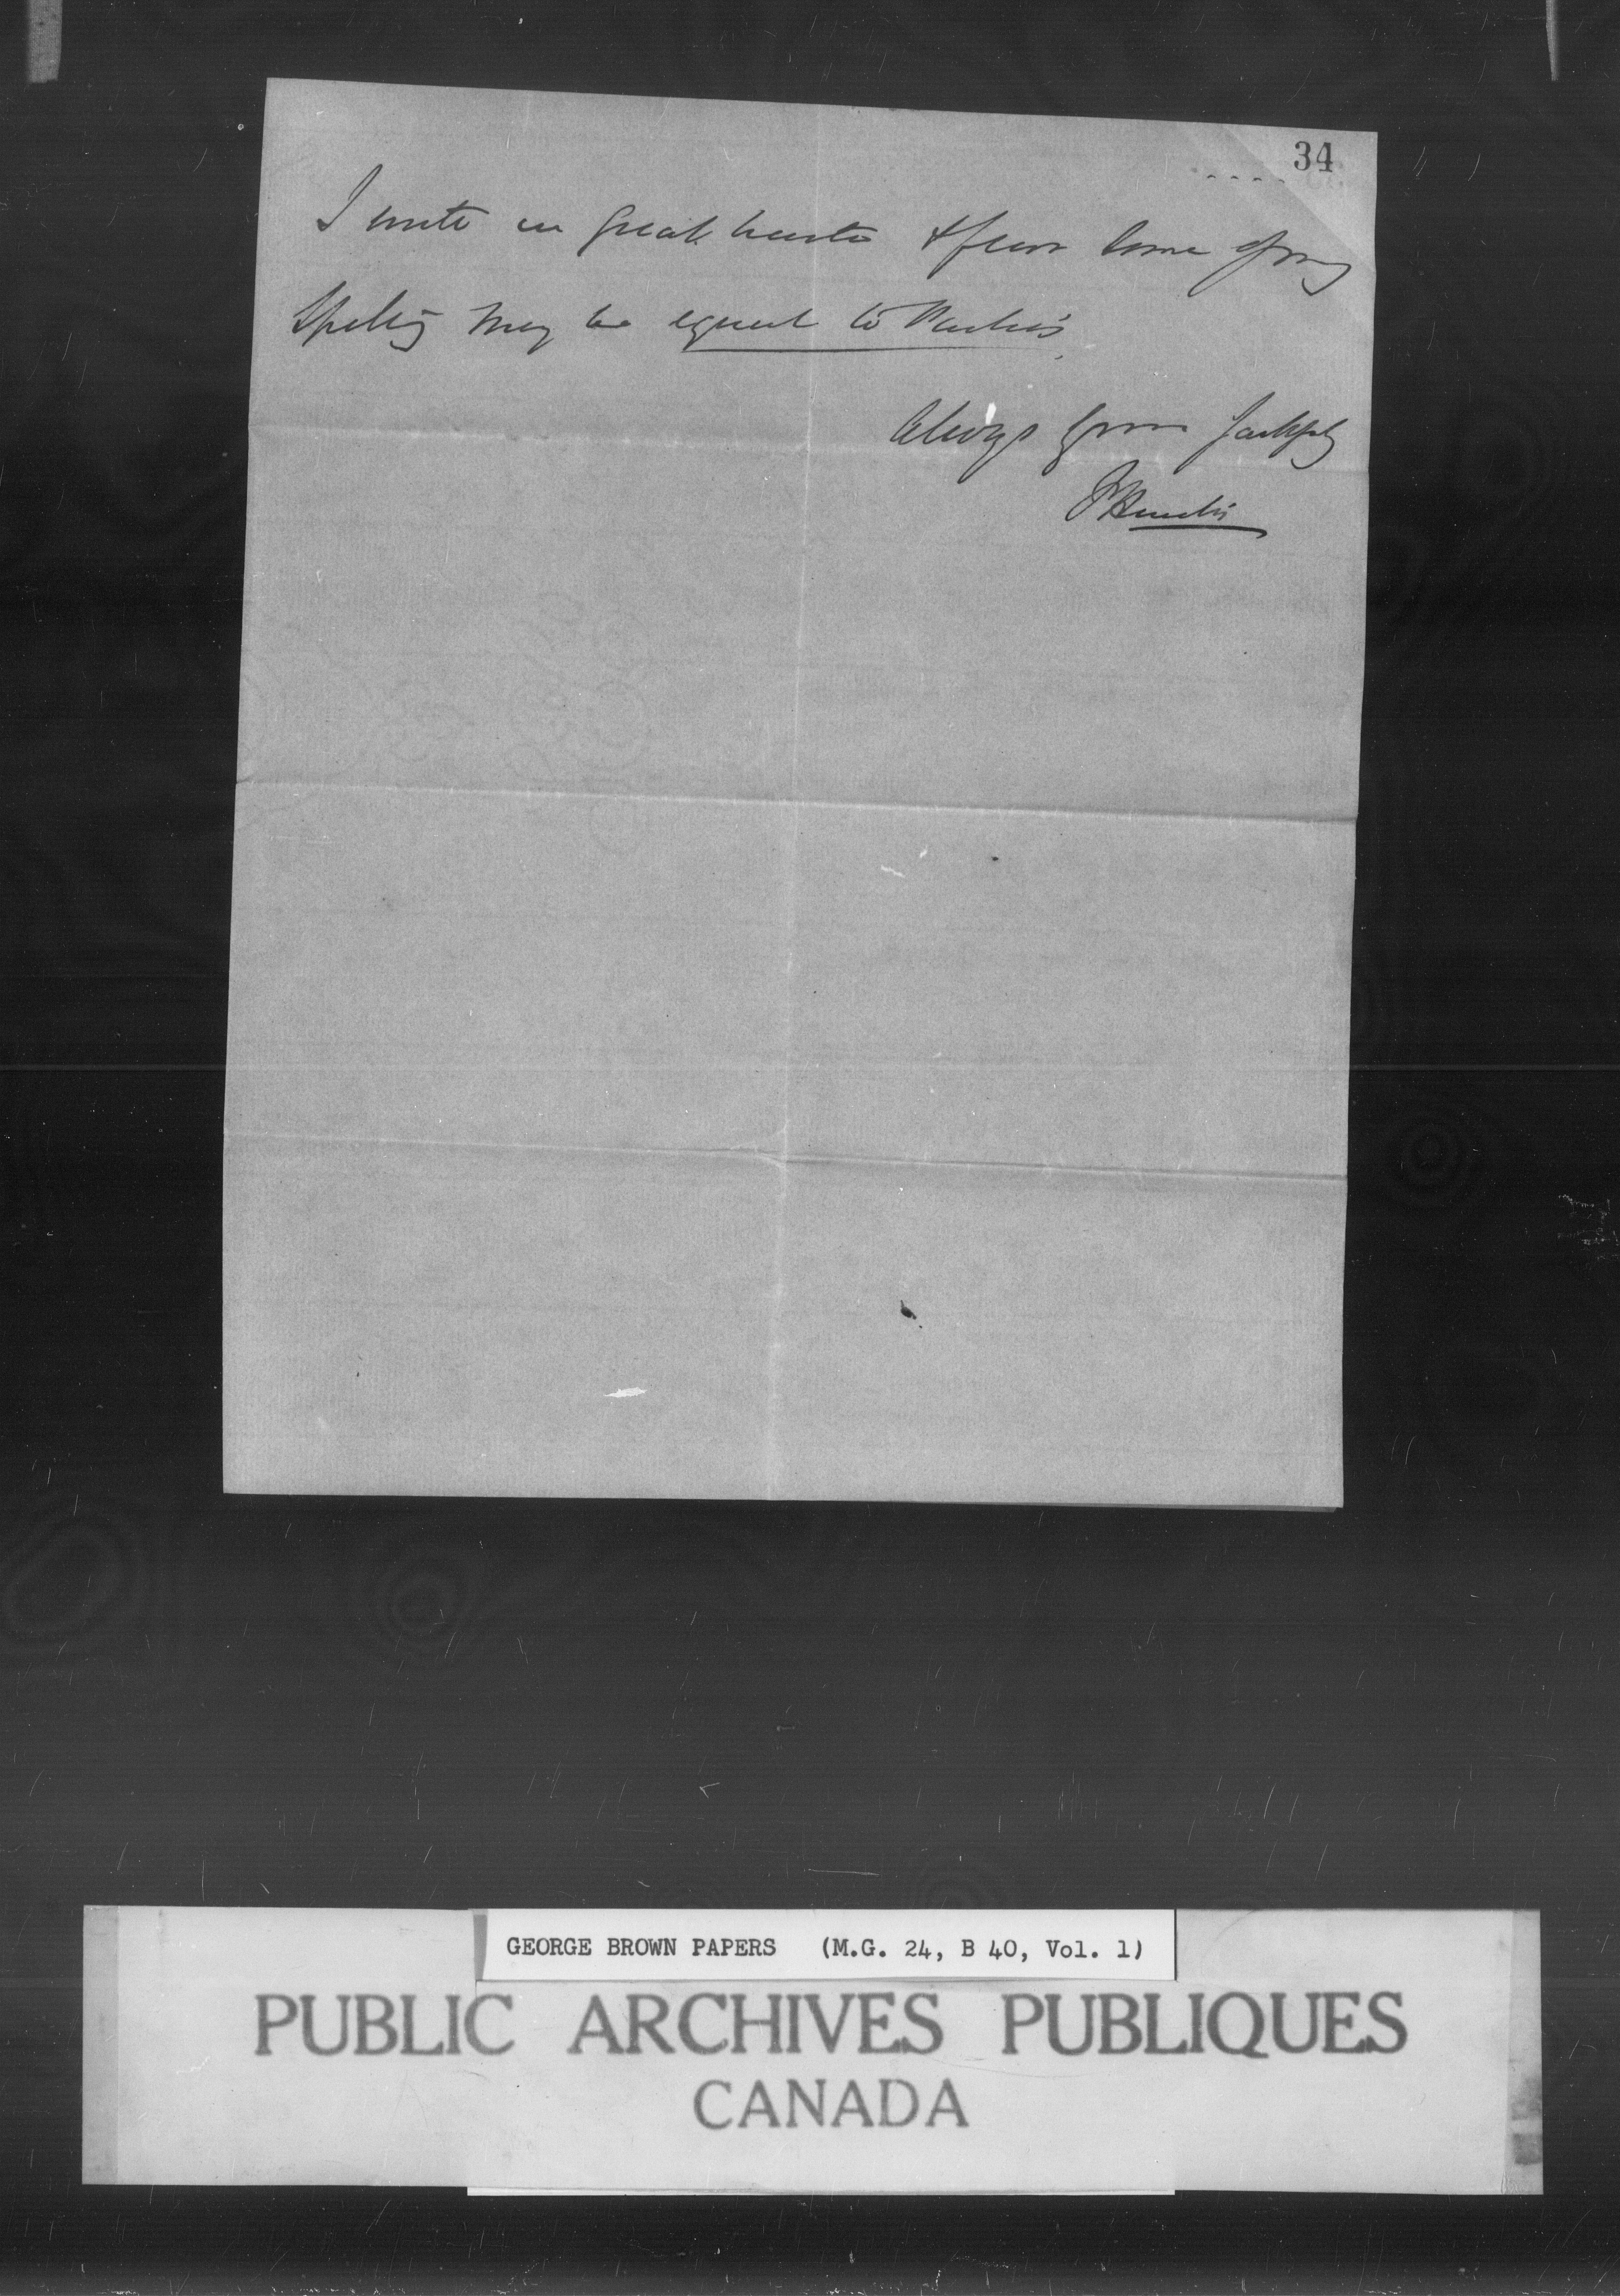 34
I write in great haste & fear some of my
spelling may be equal to
Always yours faithfully
F Hincks
GEORGE BROWN PAPERS (M.G. 24, B 40, Vol. 1)
PUBLIC ARCHIVES PUBLIQUES
CANADA